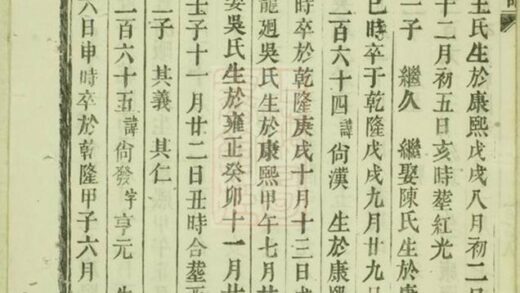 王氏生於康熙戊戌八月初二日
十二月初五日亥時塟紅光
二子 繼久 繼娶陳氏生於康
巳時卒于乾隆戊戌九月廿九日
二百六十四諱尙漢 生於康熙
時卒於乾隆庚戌十月十三日
龍廻吳氏生於康熙甲午七月
娶吳氏生於雍正癸卯十一月廿
壬子十一月廿二日丑時合塟西
二子 其義 其仁
二百六十五諱尙發字亨元 生
六日申時卒於乾隆甲子六月